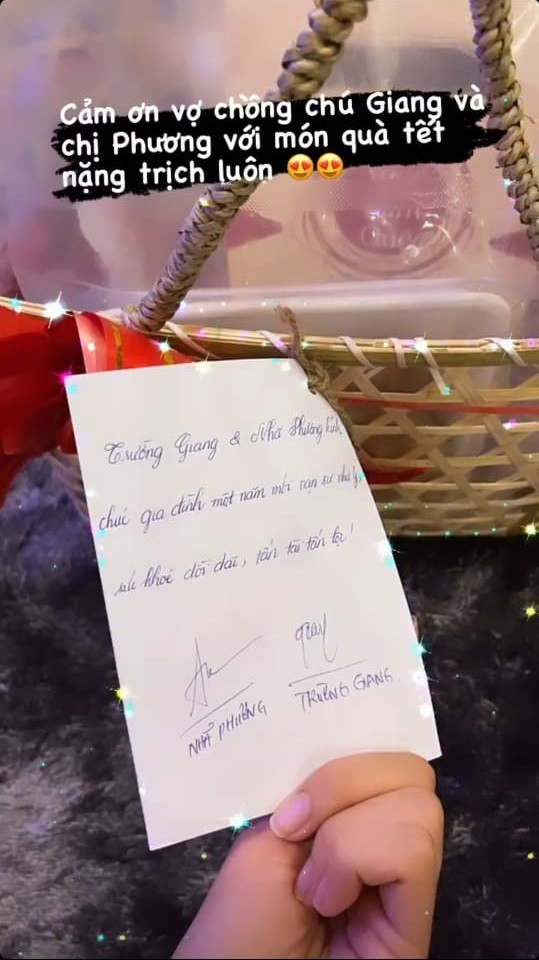 Cảm ơn vợ chồng chú Giang và
chị Phương với món quà tết
nặng trịch luôn 😍😍
Trường Giang & Nhã Phương kính
chúc gia đình một năm mới vạn sự như ý,
sức khoẻ dồi dào, tấn tài tấn lộc!
NHÃ PHƯƠNG
TRƯỜNG GIANG